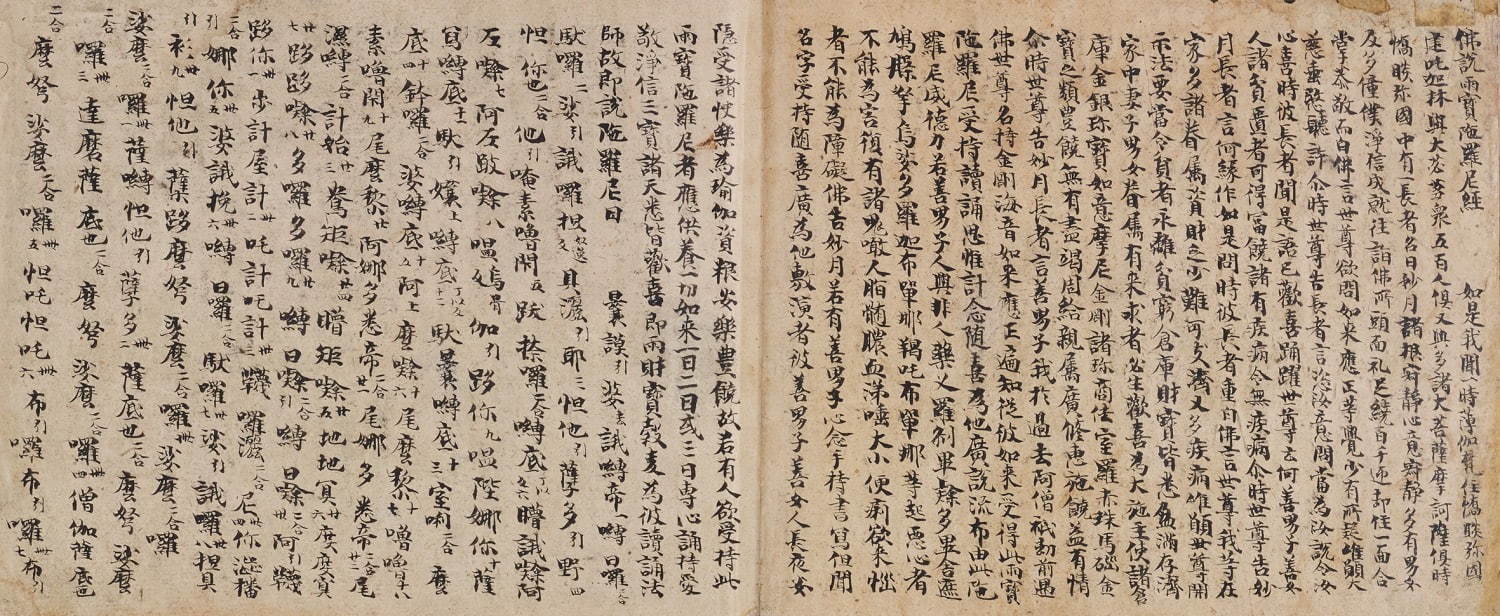 佛說雨寶陁羅尼經　如是我聞一時薄伽梵住憍睒弥國
建吒迦林與大苾芻衆五百人俱又與多諸大菩薩摩訶薩俱時
憍睒弥國中有一長者名曰妙月諸根寂静心意寂静多有男女
及多僮僕淨信成就往詣佛所頭面礼足繞百千迊却住一面合
掌恭敬而白佛言世尊欲問如來應正等覺少有所疑唯願大
慈垂愍聽許尒時世尊告長者言恣汝意問當為汝說令汝
心喜時彼長者聞是語已歡喜踊躍世尊云何善男子善女
人諸貧匱者可得富饒諸有疾病令無疾病尒時世尊告妙
月長者言何緣作如是問時彼長者重白佛言世尊我等在
家多諸眷属資財乏少難可支濟又多疾病唯願世尊開
示法要當令貧者永離貧窮倉庫財寶皆悉盈滿存濟
家中妻子男女眷属有來求者必生歡喜為大施主使諸倉
庫金銀珎寶如意摩尼金剛諸珎商佉室羅赤珠馬碯金
寶之類豊饒無有盡竭周給親属廣修惠施饒益有情
尒時世尊告妙月長者言善男子我於過去阿僧祇劫前遇
佛世尊名持金剛海音如來應正遍知從彼如來受得此雨寶
陁羅尼受持讀誦思惟計念随喜為他廣說流布由此陁
羅尼威德力若善男子人與非人藥叉羅剎畢㗚多畢舍遮
鳩槃拏烏娑多羅迦布單那羯吒布單那等起惡心者
不能為害復有諸鬼噉人脂髓膿血涕唾大小便痢欲來惱
者不能為障礙佛告妙月若有善男子心念手持書寫但聞
名字受持随喜廣為他敷演者彼善男子善女人長夜安
隱受諸快樂為瑜伽資粮安樂豊饒故若有人欲受持此
雨寶陁羅尼者應供養一切如來一日二日或三日專心誦持受
敬淨信三寶諸天悉皆歡喜即雨財寶穀麦為彼讀誦法
師故即說陁羅尼曰　曩謨引婆去誐嚩帝一嚩日囉二合
馱囉二娑引誐囉捏奴逸反具灑引耶三怛他引薩多引野四
怛你也二合他引唵素嚕閇五跋捺囉二合嚩底丁以反六瞢誐㗚阿
左㗚七阿左跛㗚八嗢嗚骨反伽引跢你九嗢陛娜你十薩
寫嚩底十一馱引孃上嚩底丁以反十二馱曩嚩底十三室唎二合麼
底十四鉢囉二合婆嚩底十五阿上麼㗚十六尾麼黎十七嚕嚕十八
素嚕閇十九尾麼黎廿阿娜多悉帝二合廿一尾娜多悉帝二合廿二尾
濕嚩二合計始廿三鴦矩㗚廿四瞢矩㗚廿五地地冥廿六度度冥
廿七跢跢㗚廿八多囉多囉廿九嚩日㗚二合嚩日㗚二合卅阿引靺
跢你卅一步計屋計卅二吒計吒計卅三靺囉灑二合尼卅四你澁播
二合引娜你卅五婆誐挽卅六嚩日囉二合馱囉卅七娑引誐囉卅八捏具
引衫卅九怛他引薩跢麼弩娑麼二合囉卌娑麼二合囉
娑麼二合囉卌一薩嚩怛他引孽多卌二薩底也二合麼弩娑麼
二合囉卌三達磨薩底也二合麼弩娑麼二合囉卌四僧伽薩底也
二合麼弩娑麼二合囉卌五怛吒怛吒卌六布引囉布引囉卌七